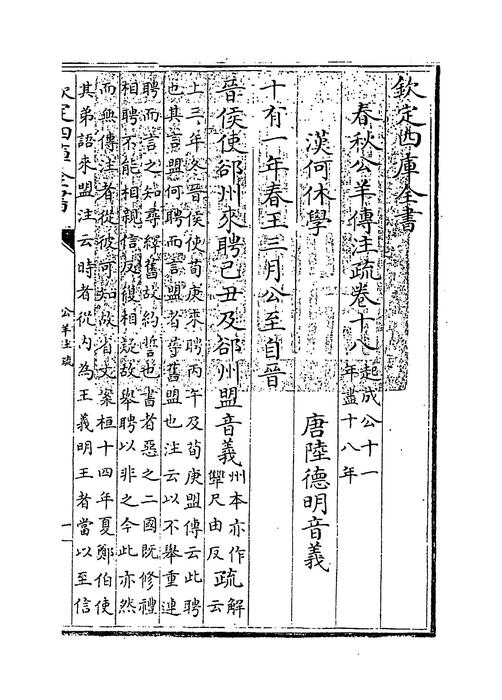 欽定四庫全書
春秋公羊傳注疏卷十八
起成公十一
年盡十八年
漢何休學
唐陸德明音義
十有一年春王三月公至自晉
晉侯使郤州來聘己丑及郤州盟音義
州本亦作
犫尺由反
疏
解
云
上三年冬晉侯使荀庚來聘丙午及荀庚盟傳云此聘
也其言盟何聘而言盟者尋舊盟也注云以不舉重連
聘而言之知尋繹舊故約誓也書者惡之二國既修禮
相聘不能相親信反復相疑故舉聘以非之今此亦然
而無傳注者從彼可知故省文案桓十四年夏鄭伯使
其弟語來盟注云時者從內為王義明王者當以至信
欽定四庫全書
公羊注疏
一